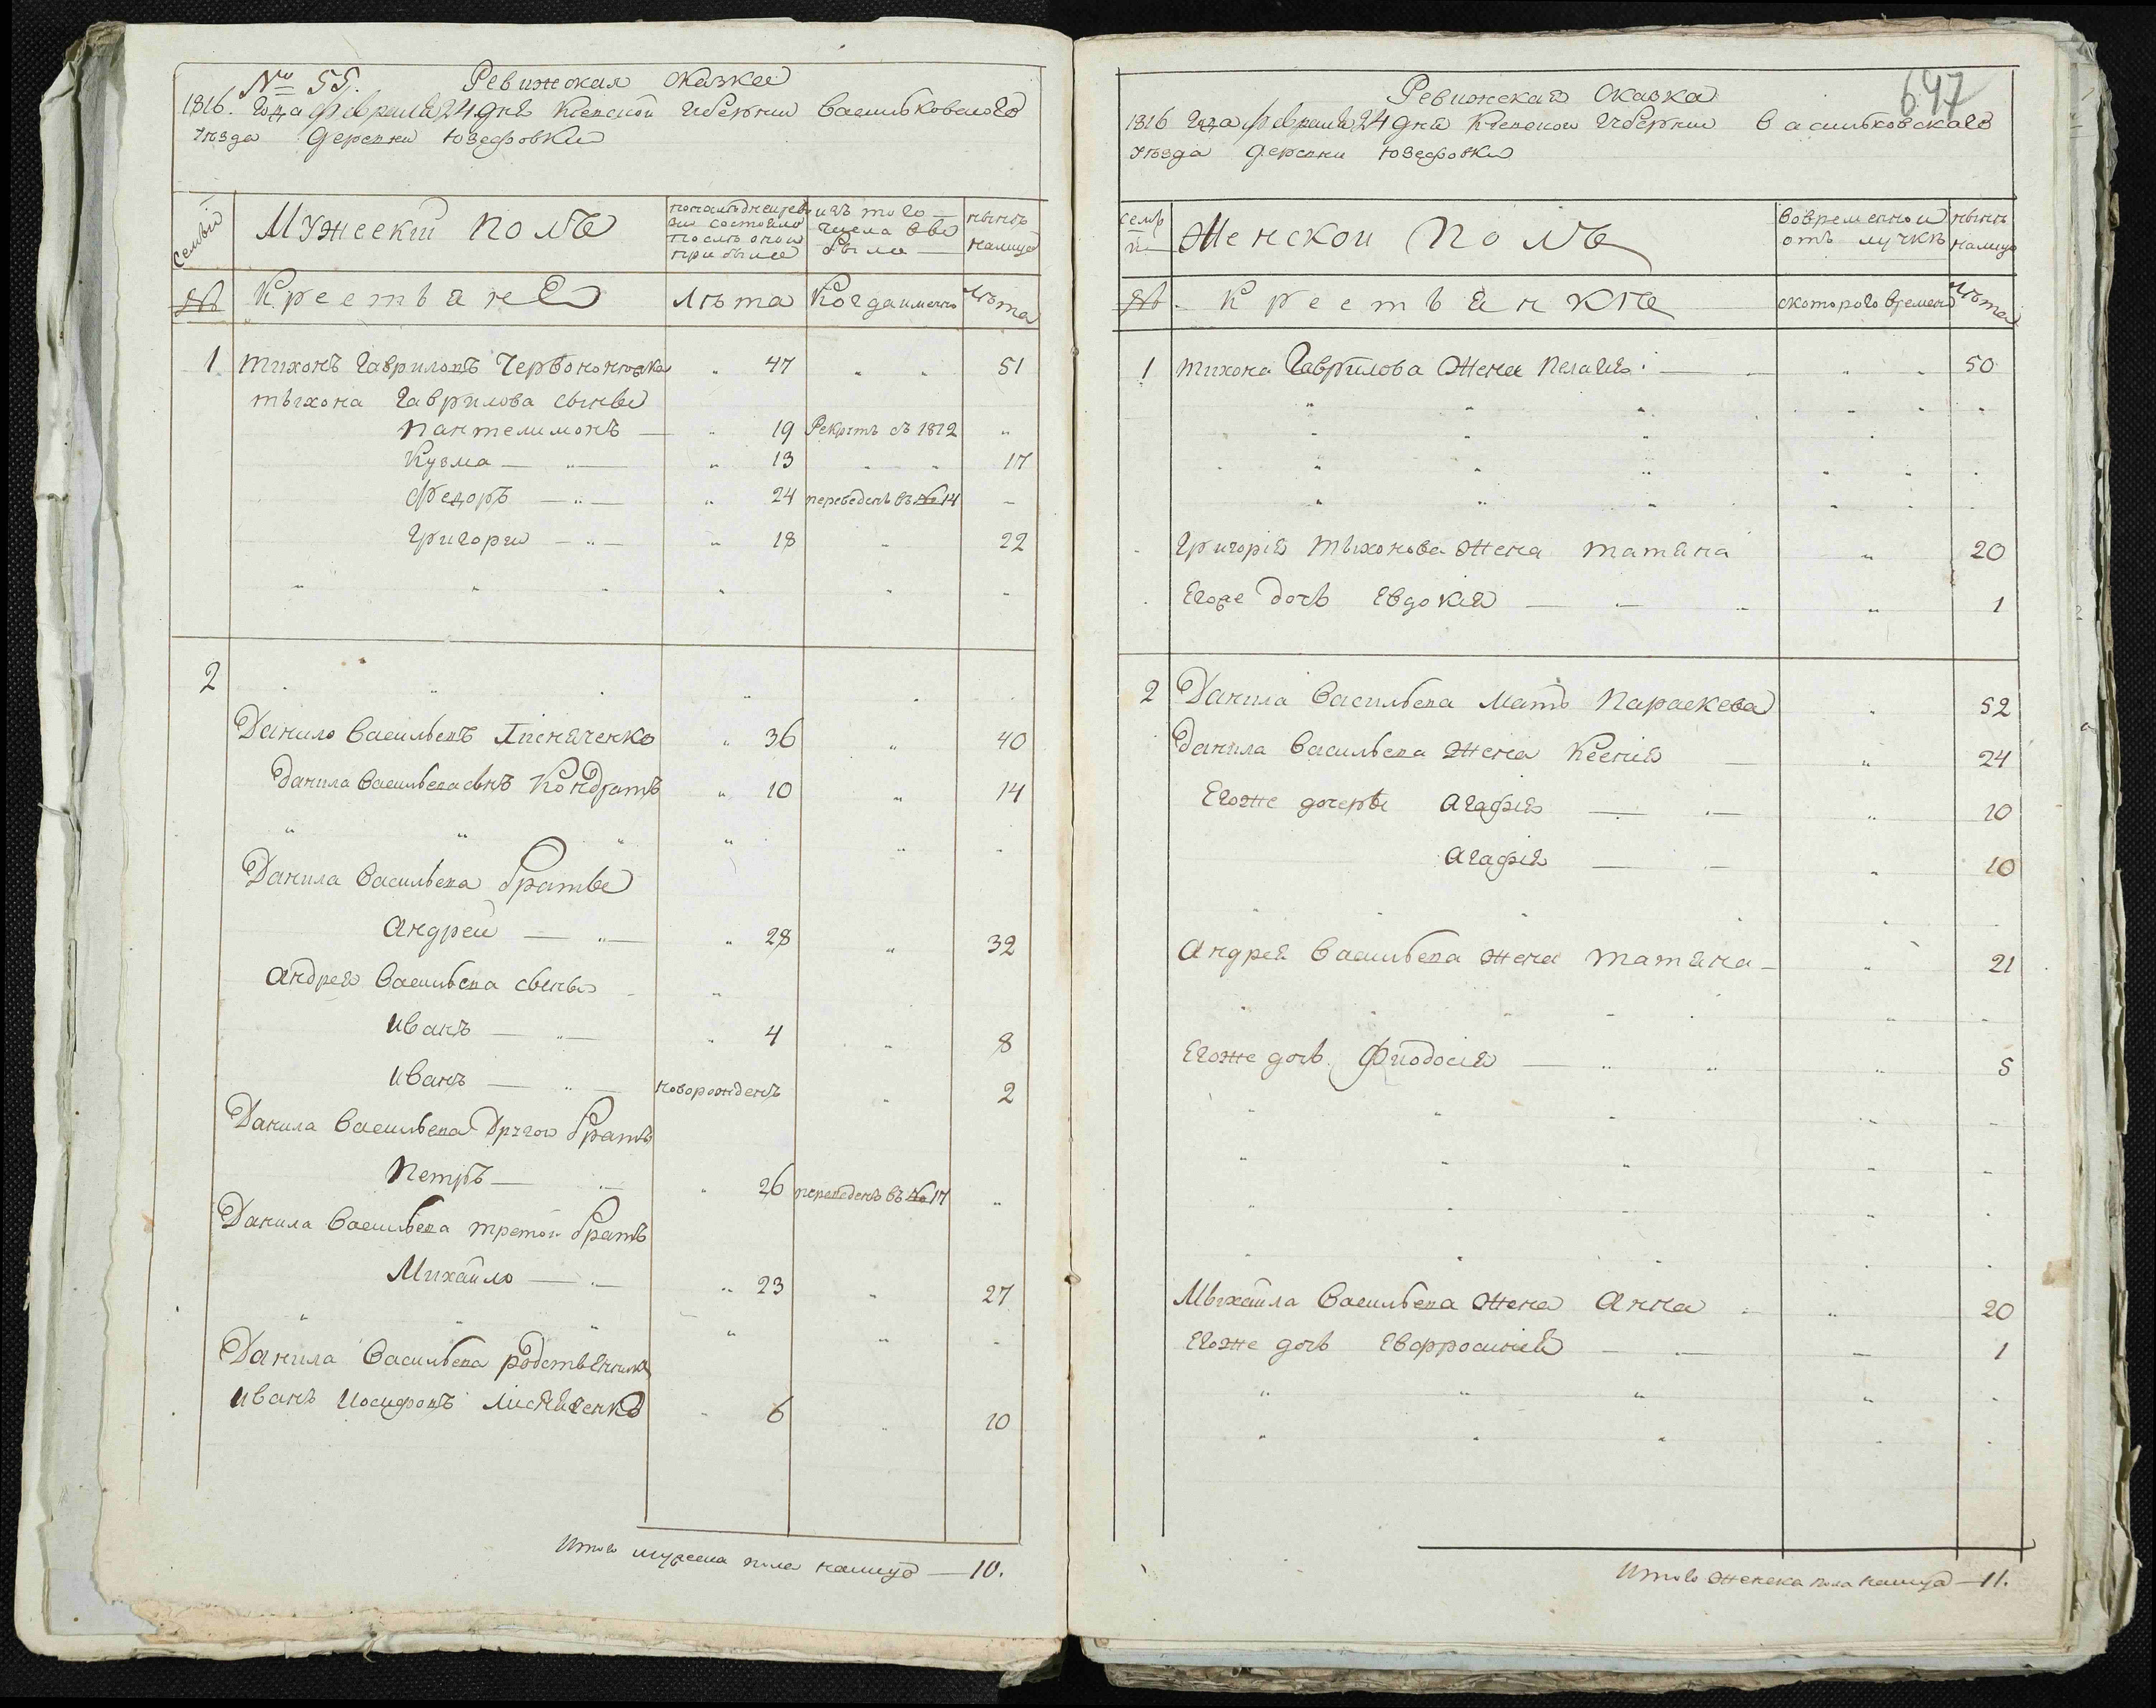 № 55. Ревижская сказка
1816. Года февраля 24 дня Киевской губернии Васильковского
уезда деревни Юзефовки
Семьи
Мужеский полъ
по последней ревизии состояло и после оной прибыло
изъ того числа выбыло
нынѣ налицо
№
Крестьяне
Лѣта
Когда именно
Лѣта
1 Тихонъ Гавриловъ Червононожка 47 51
Тыхона Гаврилова сыны
Пантелимонъ 19 Рекрутъ съ 1812
Кузма 13 17
Федоръ 24 переведенъ въ № 14
Григори 18 22
2
Данило Васильевъ Лисняченко 36 40
Данила Васильева сынъ Кондратъ 10 14
Данила Васильева братье
Андрей 28 32
Андрея Васильева сыны
Иванъ 4 8
Иванъ новорожденъ 2
Данила Васильева другои братъ
Петръ 26 переведенъ въ № 17
Данила Васильева третои братъ
Михайло 23 27
Данила Васильева родственникъ
Иванъ Иосифовъ Лисняченко 6 10
Итого мужеска пола налицо — 10.
647
Ревижская Сказка
1816 года февраля 24 дня Киевской губернии Васильковскаго
уезда деревни Юзефовки
семьи
Женскои Полъ
Во временной отлучкѣ
нынѣ налицо
№
Крестьянкие
с которого времени
Лѣта
1 Тихона Гаврилова жена Пелагия 50
Григорія Тыхонова жена Татяна 20
Егоже дочь Евдокия 1
2 Данила Васильева мать Параскева 52
Данила Васильева жена Ксения 24
Егоже дочеры Агафія 10
Агафія 10
Андрея Васильева жена Татяна 21
Егоже дочь Фиодосия 5
Мыхайла Васильева жена Анна 20
Егоже дочь Евфросиния 1
Итого женска пола налицо — 11.